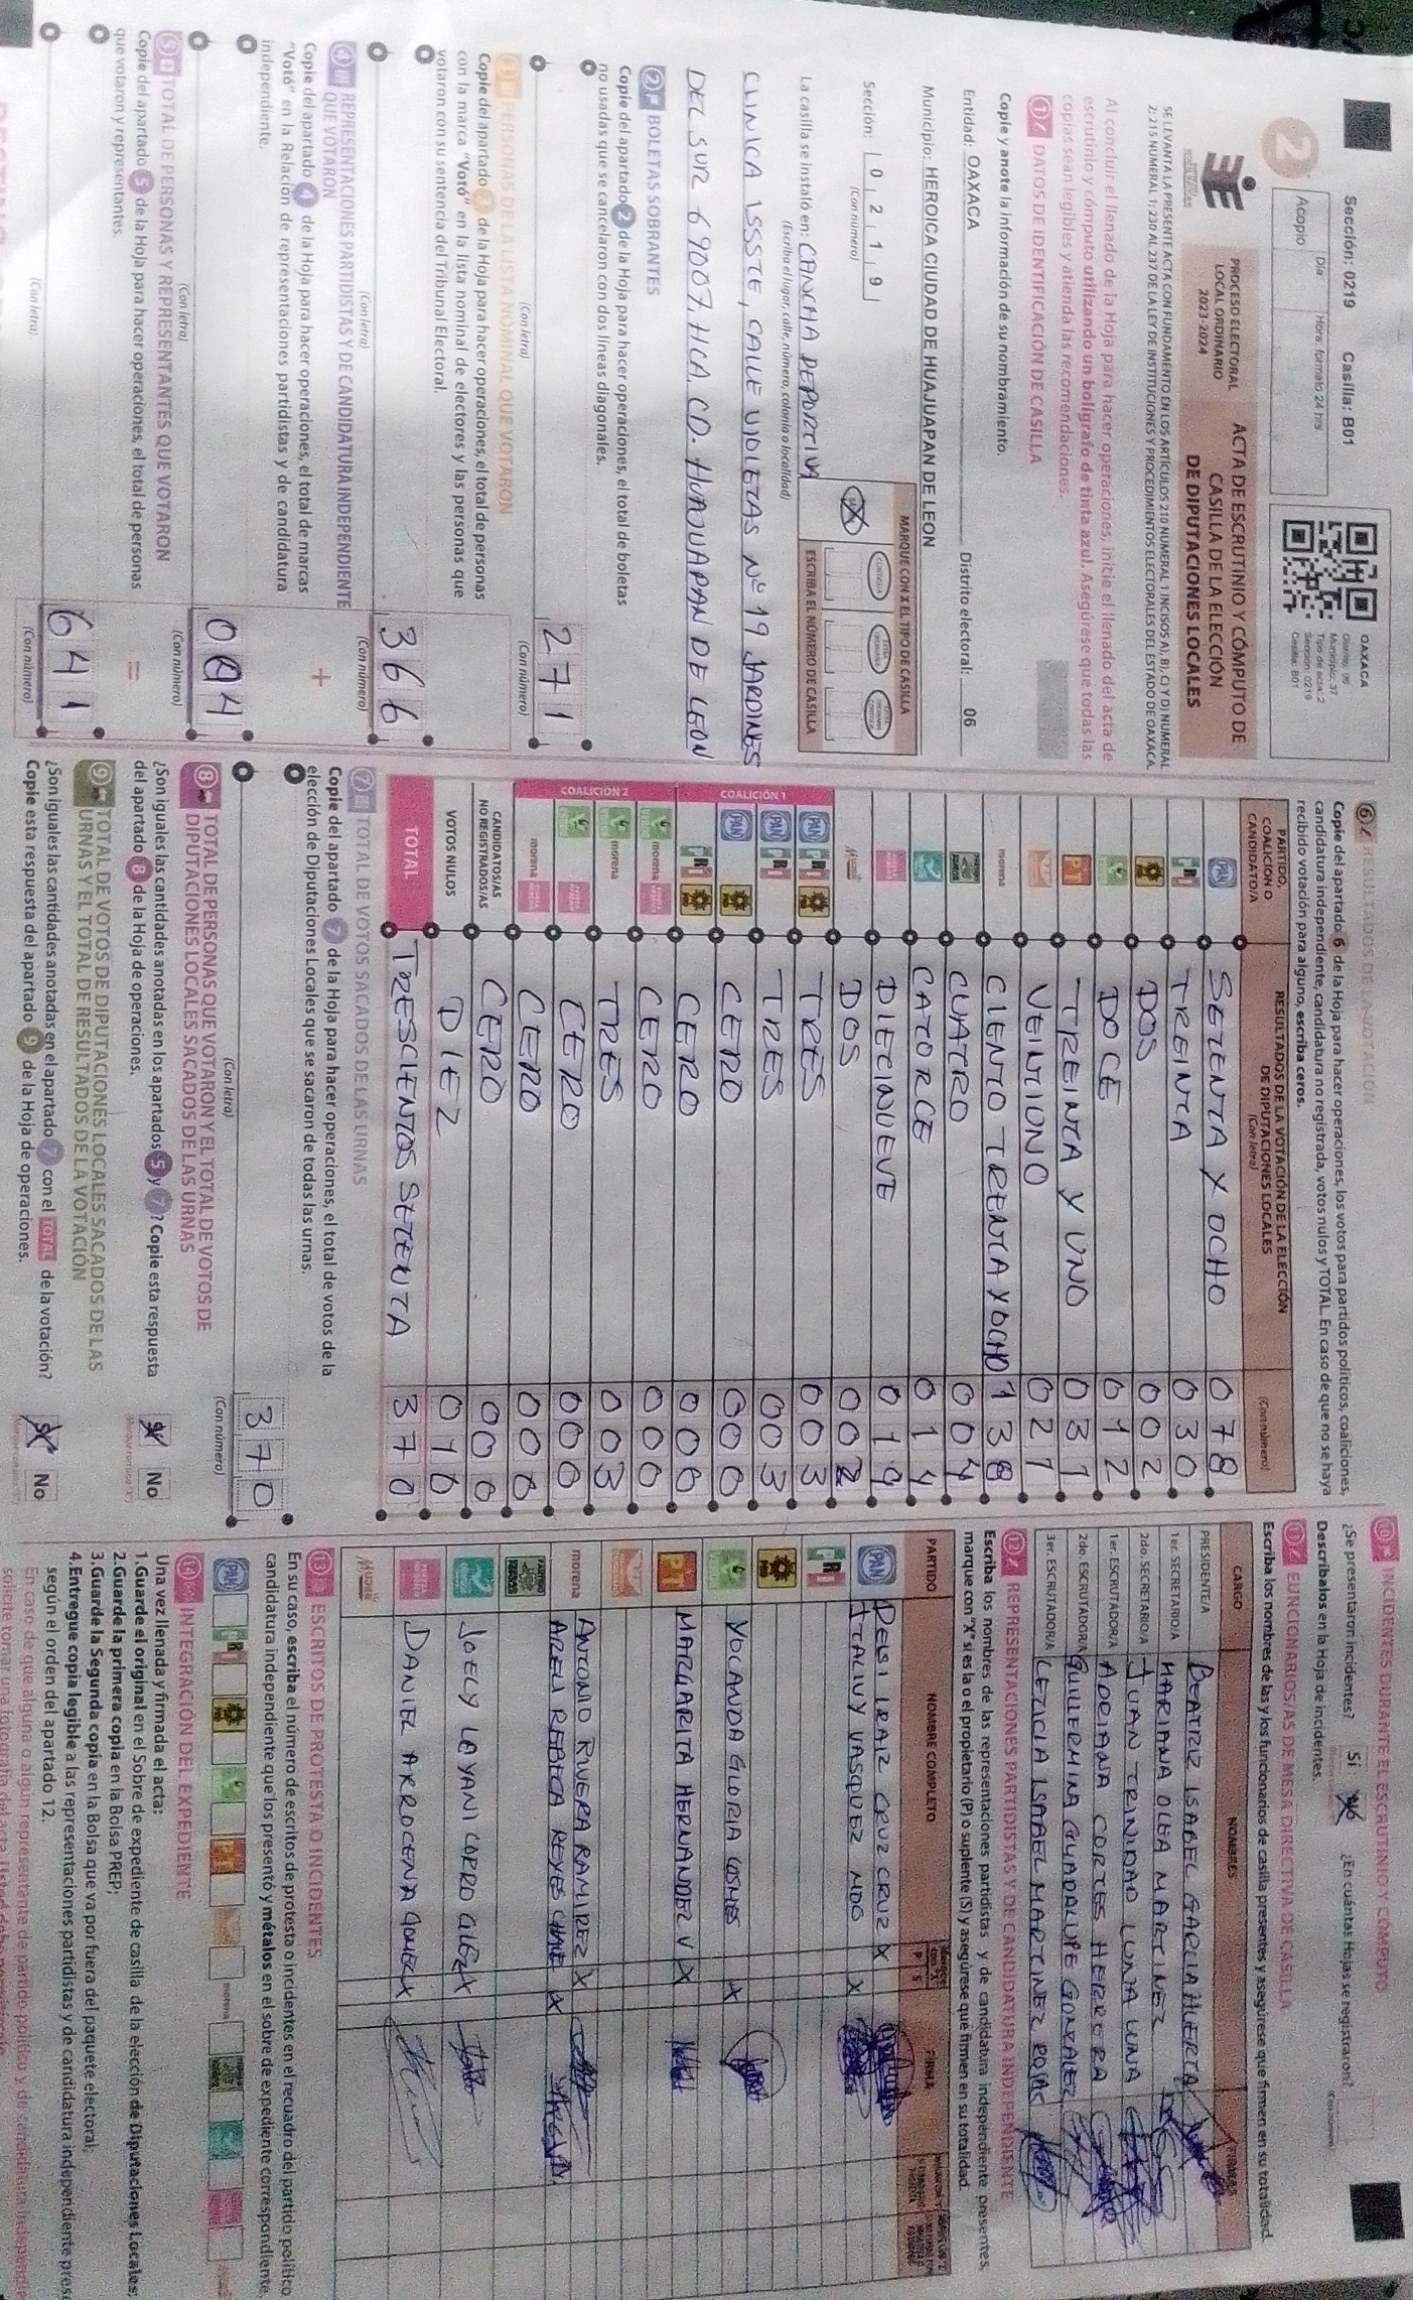 Sección: 0219 Casilla: B01
2
Acopio
Día
Hora: formato 24 hrs
OAXACA
Distrito: 06
Municipio: 37
Tipo de acta: 2
Sección: 0219
Casilla: B01
PROCESO ELECTORAL
LOCAL ORDINARIO
2023-2024
ACTA DE ESCRUTINIO Y CÓMPUTO DE
CASILLA DE LA ELECCIÓN
DE DIPUTACIONES LOCALES
SE LEVANTA LA PRESENTE ACTA CON FUNDAMENTO EN LOS ARTÍCULOS 210 NUMERAL 1 INCISOS A), B), C) Y D) NUMERAL
2; 215 NUMERAL 1; 230 AL 237 DE LA LEY DE INSTITUCIONES Y PROCEDIMIENTOS ELECTORALES DEL ESTADO DE OAXACA.
Al concluir el llenado de la Hoja para hacer operaciones, inicie el llenado del acta de
escrutinio y cómputo utilizando un bolígrafo de tinta azul. Asegúrese que todas las
copias sean legibles y atienda las recomendaciones.
1 DATOS DE IDENTIFICACIÓN DE CASILLA
Copie y anote la información de su nombramiento.
Entidad: OAXACA Distrito electoral: 06
Municipio: HEROICA CIUDAD DE HUAJUAPAN DE LEON
Sección: 0 2 1 9
(Con número)
MARQUE CON X EL TIPO DE CASILLA
ESCRIBA EL NÚMERO DE CASILLA
La casilla se instaló en: CANCHA DEPORTIVA
(Escriba el lugar, calle, número, colonia o localidad)
CLINICA ISSSTE, CALLE VIOLETAS N° 19 JARDINES
DEL SUR 69007, HCA. CD. HUAJUAPAN DE LEON
2 BOLETAS SOBRANTES
Copie del apartado 2 de la Hoja para hacer operaciones, el total de boletas
no usadas que se cancelaron con dos líneas diagonales.
271
(Con letra) (Con número)
3 PERSONAS DE LA LISTA NOMINAL QUE VOTARON
Copie del apartado 3 de la Hoja para hacer operaciones, el total de personas
con la marca "Votó" en la lista nominal de electores y las personas que
votaron con su sentencia del Tribunal Electoral.
366
(Con letra) (Con número)
4 REPRESENTACIONES PARTIDISTAS Y DE CANDIDATURA INDEPENDIENTE
QUE VOTARON
Copie del apartado 4 de la Hoja para hacer operaciones, el total de marcas
"Votó" en la Relación de representaciones partidistas y de candidatura
independiente.
+
004
(Con letra) (Con número)
5 TOTAL DE PERSONAS Y REPRESENTANTES QUE VOTARON
Copie del apartado 5 de la Hoja para hacer operaciones, el total de personas
que votaron y representantes.
=
641
(Con letra) (Con número)
6 RESULTADOS DE LA VOTACIÓN
Copie del apartado 6 de la Hoja para hacer operaciones, los votos para partidos políticos, coaliciones,
candidatura independiente, candidatura no registrada, votos nulos y TOTAL. En caso de que no se haya
recibido votación para alguno, escriba ceros.
PARTIDO,
COALICIÓN O
CANDIDATO/A
RESULTADOS DE LA VOTACIÓN DE LA ELECCIÓN
DE DIPUTACIONES LOCALES
(Con letra)
(Con número)
PAN SETENTA Y OCHO 078
PRI TREINTA 030
PRD DOS 002
DOCE 012
PT TREINTA Y UNO 031
VEINTIUNO 021
morena CIENTO TREINTA Y OCHO 138
CUATRO 004
CATORCE 014
DIECINUEVE 019
DOS 002
COALICIÓN 1
PAN PRI PRD TRES 003
PAN PRI TRES 003
PAN PRD CERO 000
PRI PRD CERO 000
COALICIÓN 2
morena CERO 000
morena TRES 003
CERO 000
morena CERO 000
CANDIDATOS/AS
NO REGISTRADOS/AS CERO 000
VOTOS NULOS DIEZ 010
TOTAL TRESCIENTOS SETENTA 370
7 TOTAL DE VOTOS SACADOS DE LAS URNAS
Copie del apartado 7 de la Hoja para hacer operaciones, el total de votos de la
elección de Diputaciones Locales que se sacaron de todas las urnas.
370
(Con letra) (Con número)
8 TOTAL DE PERSONAS QUE VOTARON Y EL TOTAL DE VOTOS DE
DIPUTACIONES LOCALES SACADOS DE LAS URNAS
¿Son iguales las cantidades anotadas en los apartados 5 y 7? Copie esta respuesta
del apartado 8 de la Hoja de operaciones.
Sí No
9 TOTAL DE VOTOS DE DIPUTACIONES LOCALES SACADOS DE LAS
URNAS Y EL TOTAL DE RESULTADOS DE LA VOTACIÓN
¿Son iguales las cantidades anotadas en el apartado 7 con el TOTAL de la votación?
Copie esta respuesta del apartado 9 de la Hoja de operaciones.
Sí No
10 INCIDENTES DURANTE EL ESCRUTINIO Y CÓMPUTO
¿Se presentaron incidentes? Sí No ¿En cuántas Hojas se registraron?
(Con número)
Descríbalos en la Hoja de incidentes.
11 FUNCIONARIOS/AS DE MESA DIRECTIVA DE CASILLA
Escriba los nombres de las y los funcionarios de casilla presentes y asegúrese que firmen en su totalidad.
CARGO NOMBRES FIRMAS
PRESIDENTE/A BEATRIZ ISABEL GARCIA HUERTA
1er. SECRETARIO/A MARIANA OLEA MARTINEZ
2do. SECRETARIO/A JUAN TRINIDAD LUNA LUNA
1er. ESCRUTADOR/A ADRIANA CORTES HERRERA
2do. ESCRUTADOR/A GUILLERMINA GUADALUPE GONZALEZ
3er. ESCRUTADOR/A LETICIA ISABEL MARTINEZ ROJAS
12 REPRESENTACIONES PARTIDISTAS Y DE CANDIDATURA INDEPENDIENTE
Escriba los nombres de las representaciones partidistas y de candidatura independiente presentes,
marque con "X" si es la o el propietario (P) o suplente (S) y asegúrese que firmen en su totalidad.
PARTIDO NOMBRE COMPLETO P S FIRMA
PAN DELSI IRAIZ CRUZ CRUZ X
ITALIVY VASQUEZ MDO X
PRI
PRD
YOLANDA GLORIA COSMES X
PT MARGARITA HERNANDEZ V X
morena ANTONIO RIVERA RAMIREZ X
ARELI REBECA REYES X
JOELY LEYANI X
DANIEL ARROCENA X
13 ESCRITOS DE PROTESTA O INCIDENTES
En su caso, escriba el número de escritos de protesta o incidentes en el recuadro del partido político
candidatura independiente que los presentó y métalos en el sobre de expediente correspondiente.
PAN PRI PRD PT morena
14 INTEGRACIÓN DEL EXPEDIENTE
Una vez llenada y firmada el acta:
1.Guarde el original en el Sobre de expediente de casilla de la elección de Diputaciones Locales;
2.Guarde la primera copia en la Bolsa PREP;
3.Guarde la Segunda copia en la Bolsa que va por fuera del paquete electoral;
4.Entregue copia legible a las representaciones partidistas y de candidatura independiente pres
según el orden del apartado 12.
En caso de que alguna o algún representante de partido político y de candidatura independie
solicite tomar una fotografía del acta